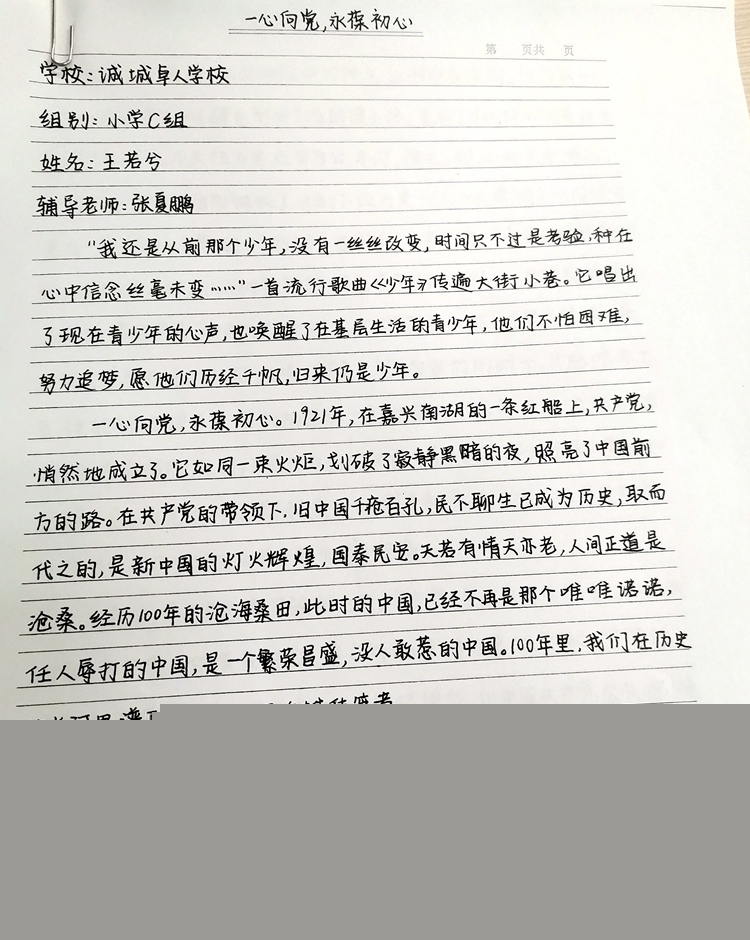 一心向党,永葆初心
第 页共 页
学校:诚城卓人学校
组别:小学C组
姓名:王若兮
辅导老师:张夏鹏
“我还是从前那个少年,没有一丝丝改变,时间只不过是考验,种在
心中信念丝毫未变……”一首流行歌曲《少年》传遍大街小巷。它唱出
了现在青少年的心声,也唤醒了在基层生活的青少年,他们不怕困难,
努力追梦,愿他们历经千帆,归来仍是少年。
一心向党,永葆初心。1921年,在嘉兴南湖的一条红船上,共产党,
悄然地成立了。它如同一束火炬,划破了寂静黑暗的夜,照亮了中国前
方的路。在共产党的带领下,旧中国千疮百孔,民不聊生已成为历史,取而
代之的,是新中国的灯火辉煌,国泰民安。天若有情天亦老,人间正道是
沧桑。经历100年的沧海桑田,此时的中国,已经不再是那个唯唯诺诺,
任人辱打的中国,是一个繁荣昌盛,没人敢惹的中国。100年里,我们在历史